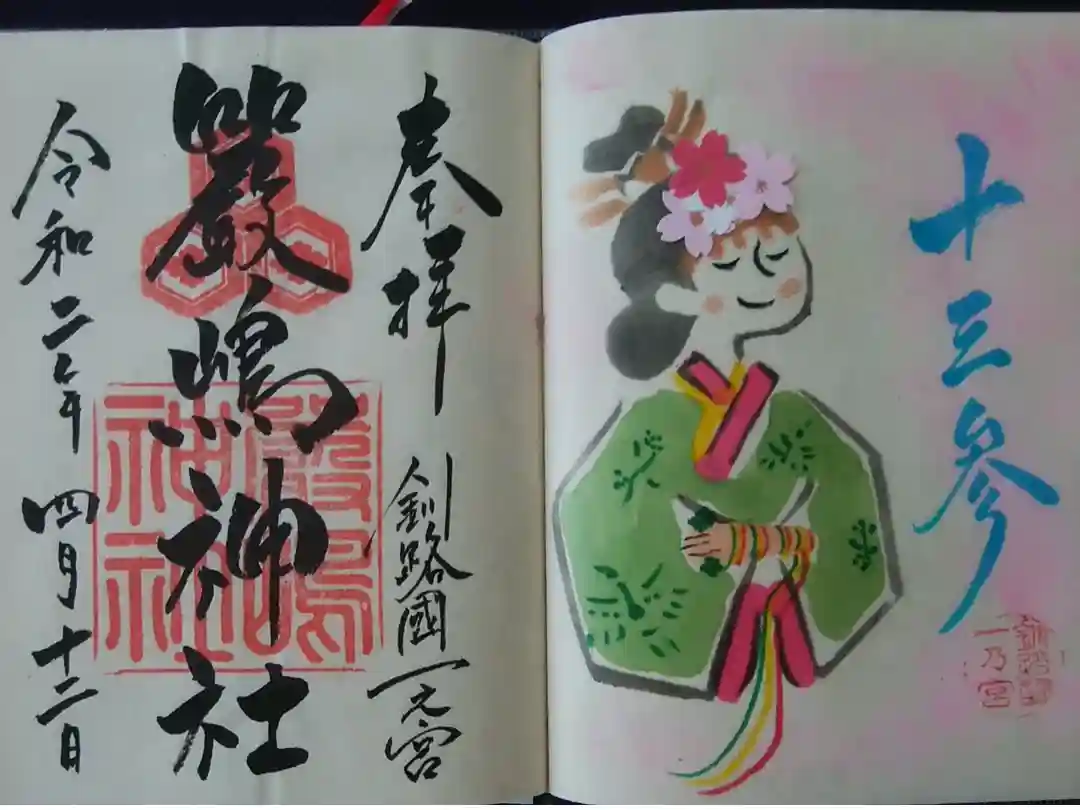 十三参
釧路國
一乃宮
奉拝
釧路國一之宮
嚴嶋神社
令和二年四月十二日